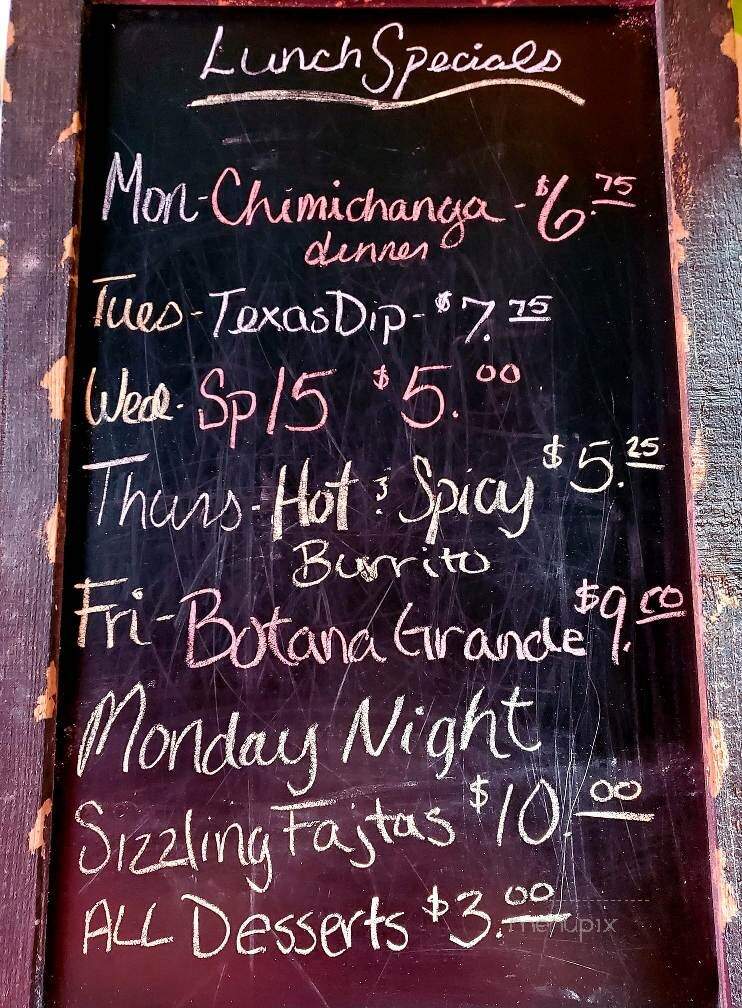 Lunch Specials
Mon-Chimichanga - $6.75
dinner
Tues-Texas Dip-$7.75
Wed. Sp15 $5.00
Thurs-Hot & Spicy $5.25
Burrito
Fri-Botana Grande $9.00
Monday Night
Sizzling Fajtas $10.00
ALL Desserts $3.00
menupix